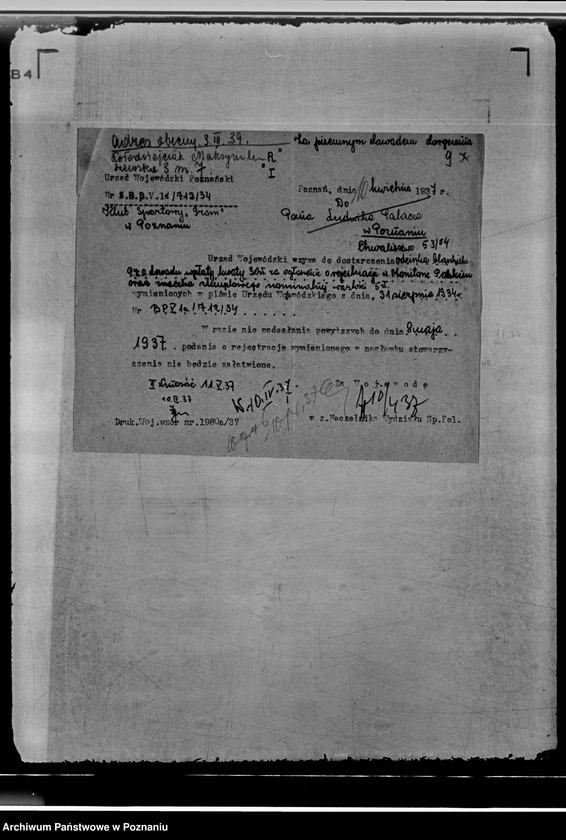 B4
adres obecny 3.III.39.
Kołodziejczak Maksymilian "R"
3 m. 7. "I"
Za piśmiennym dowodem doręczenia
9 x
Urząd Wojewódzki Poznański
Nr B.B.P.V.1d/712/34
Klub Sportowy "Gram"
w Poznaniu
Poznań, dnia 10 kwietnia 1937 r.
Do
Pana Ludwika Palacza
w Poznaniu
Chwaliszewo 53/54
Urząd Wojewódzki wzywa do dostarczenia odcinka
dowodu wpłaty kwoty 30 zł za ogłoszenie o rejestracji w Monitorze Polskim
oraz znaczka stemplowego nominalnej wartości 5 zł
wymienionych w piśmie Urzędu Wojewódzkiego z dnia 31 sierpnia 1934 r.
Nr BPV 1a/712/34
W razie nie nadesłania powyższych do dnia 8 maja . .
1937 . podanie o rejestrację wymienionego w nagłówku stowarzy-
szenia nie będzie załatwione.
11.V.37
10.IV.37
10.IV.37.
Za Wojewodę
10/4 37
Druk.Woj.wzór nr.1980a/37
w z.Naczelnika Wydziału Sp.Pol.
Archiwum Państwowe w Poznaniu